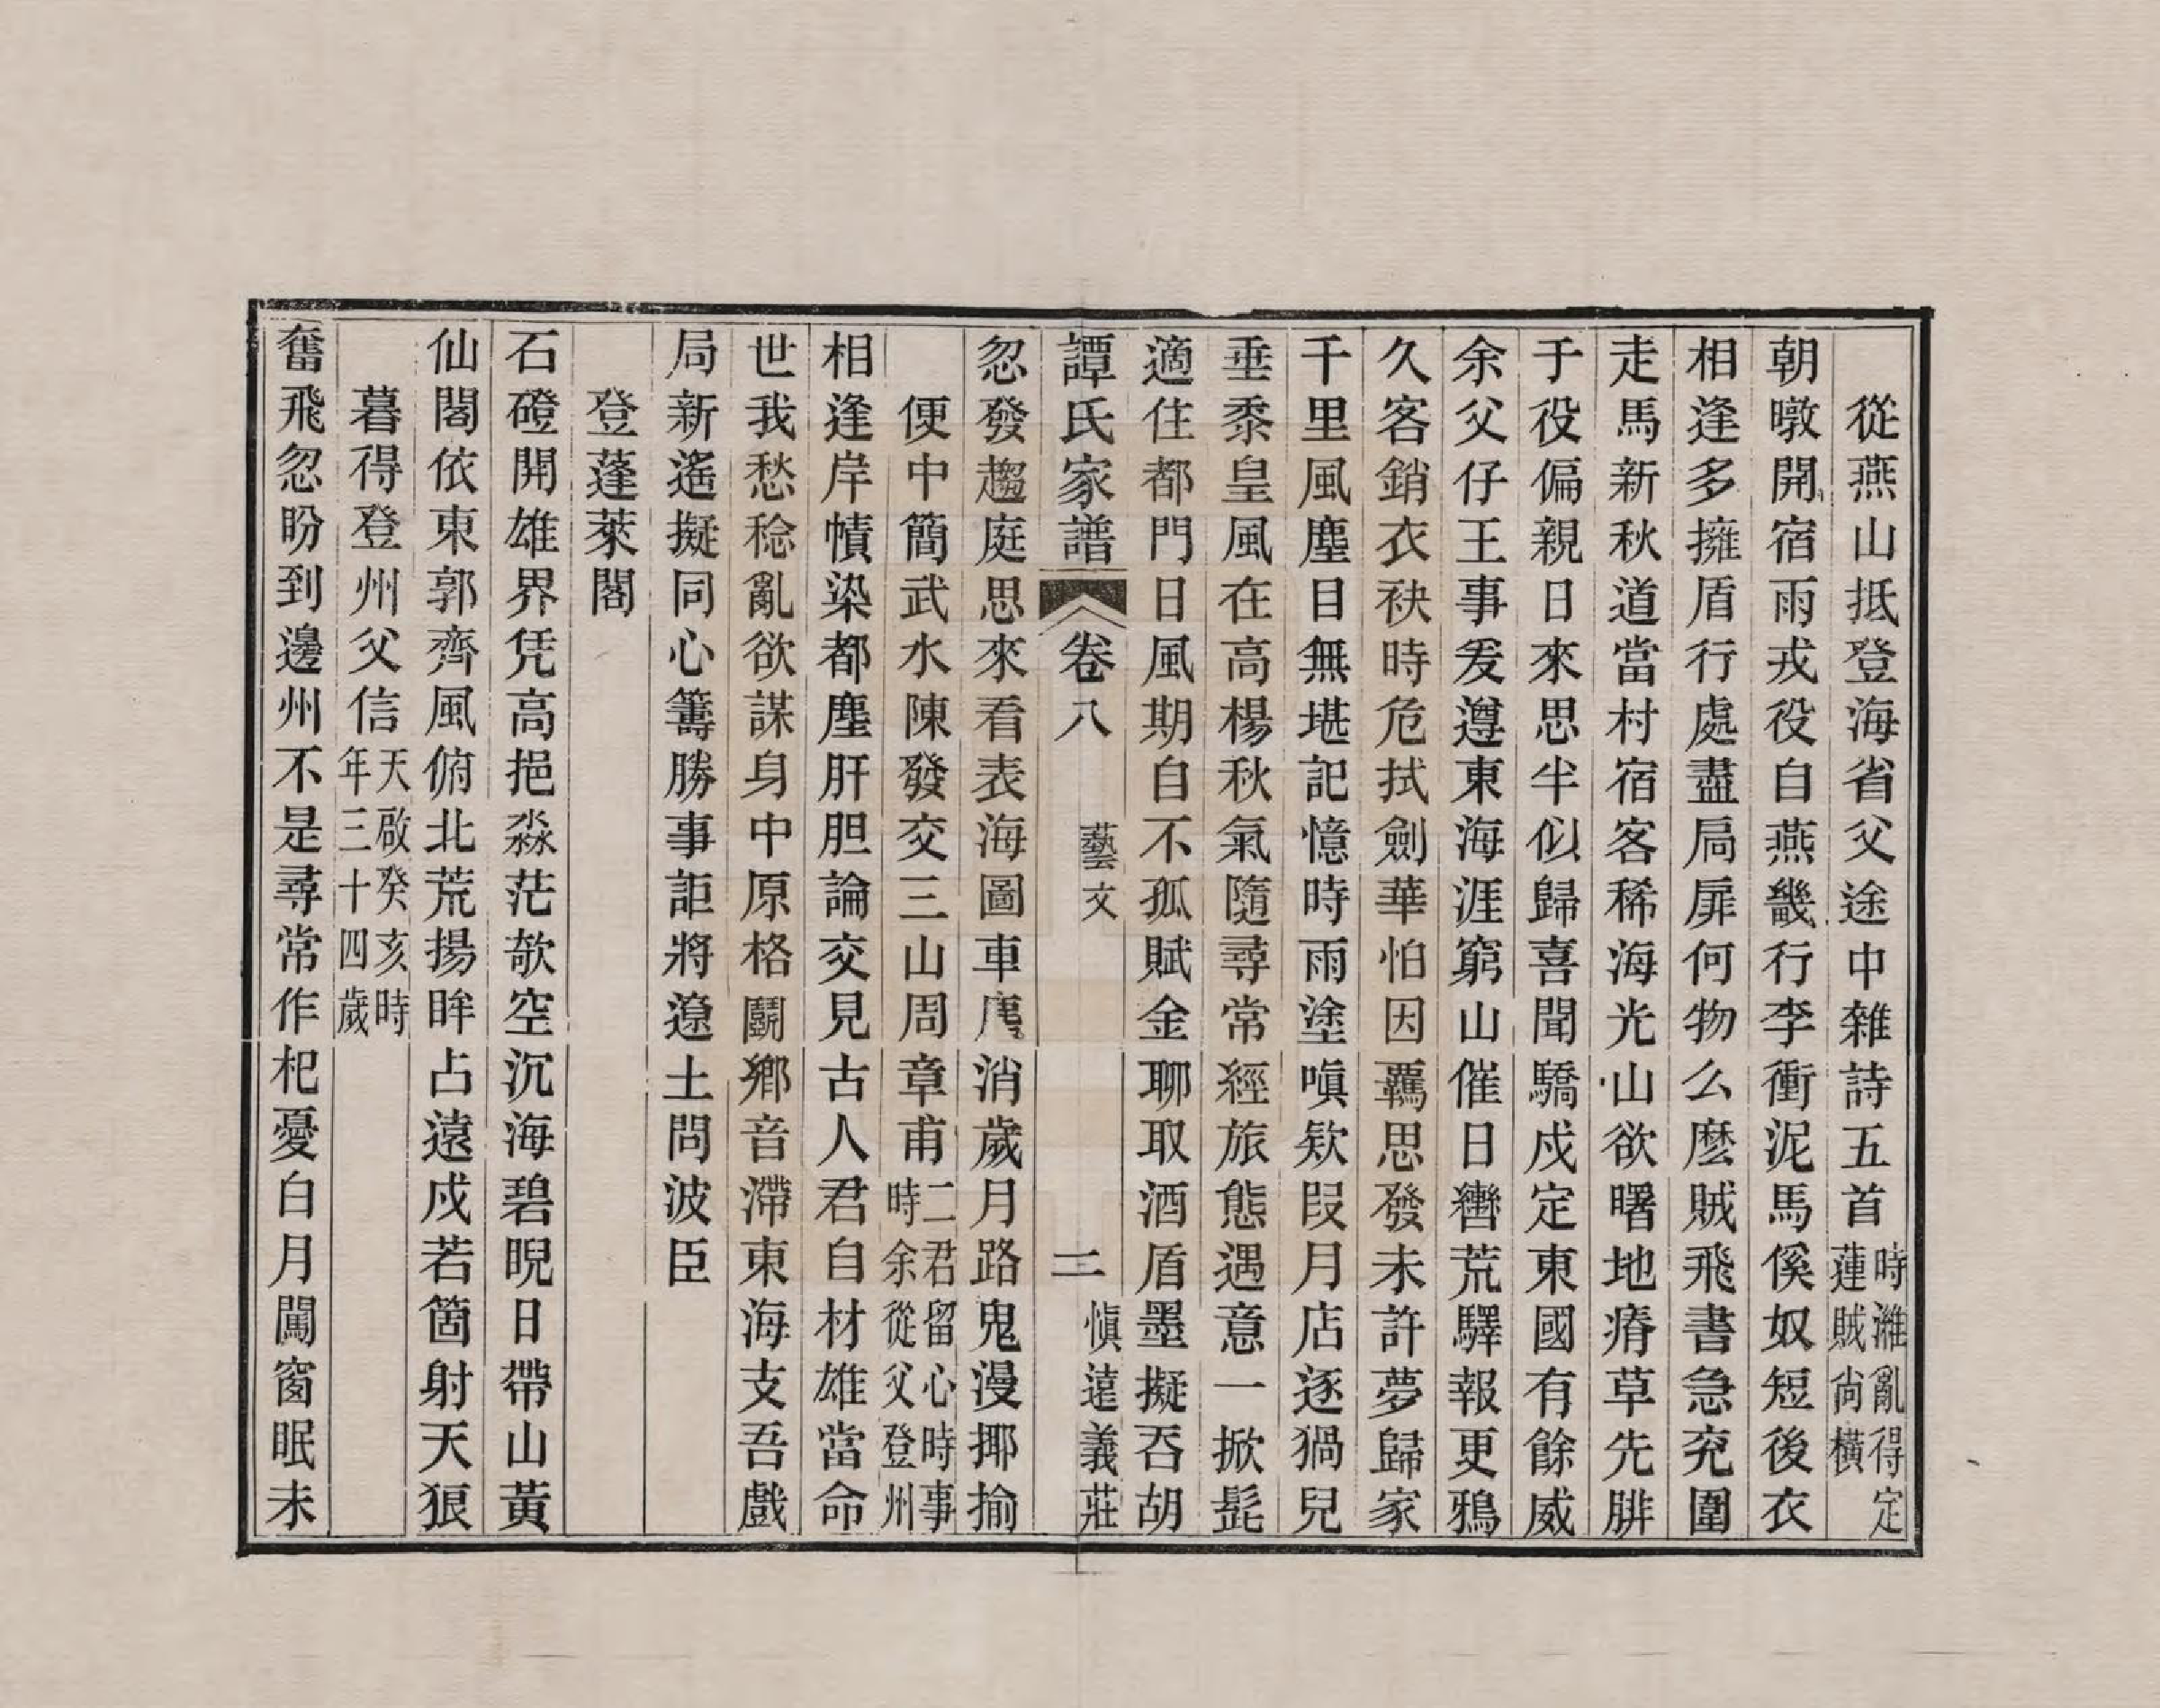 從燕山抵登海省父途中雜詩五首時濰亂得定蓮賊尚橫
朝暾開宿雨戎役自燕畿行李衝泥馬傒奴短後衣
相逢多擁盾行處盡局扉何物么麽賊飛書急充圍
走馬新秋道當村宿客稀海光山欲曙地瘠草先腓
于役偏親日來思半似歸喜聞驕戍定東國有餘威
余父仔王事爰遵東海涯窮山催日轡荒驛報更鴉
久客銷衣袂時危拭劍華怕因覊思發未許夢歸家
千里風塵目無堪記憶時雨塗嗔欵段月店逐猧兒
垂黍皇風在高楊秋氣隨尋常經旅態遇意一掀髭
適住都門日風期自不孤賦金聊取酒盾墨擬吞胡
譚氏家譜 卷八 藝文 二 愼遠義莊
忽發趨庭思來看表海圖車塵消歲月路鬼漫揶揄
便中簡武水陳發交三山周章甫二君留心時事時余從父登州
相逢岸幘染都塵肝胆論交見古人君自材雄當命
世我愁稔亂欲謀身中原格鬭鄉音滯東海支吾戲
局新遙擬同心籌勝事詎將遼土問波臣
登蓬萊閣
石磴開雄界凭高挹淼茫欹空沉海碧睨日帶山黃
仙閣依東郭齊風俯北荒揚眸占遠戍若箇射天狼
暮得登州父信天啟癸亥時年三十四歲
奮飛忽盼到邊州不是尋常作杞憂白月闖窗眠未